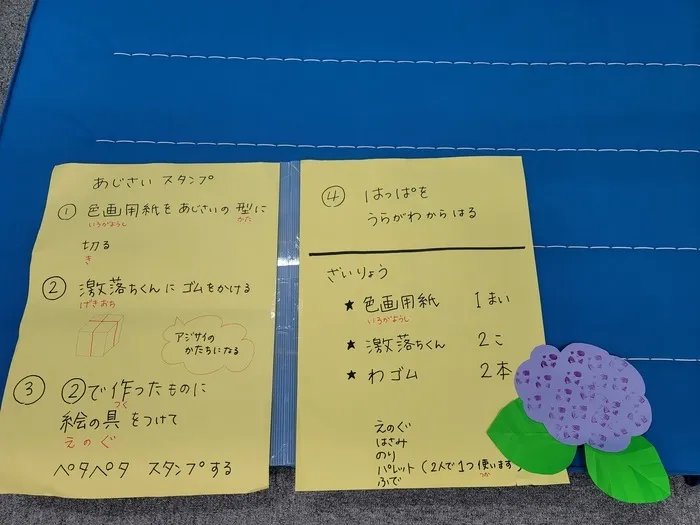 あじさい スタンプ
① 色画用紙を あじさいの 型に
いろがようし かた
切る
き
② 激落ちくんに ゴムをかける
げきおち
アジサイの
かたちになる
③ ②で 作ったものに
つく
絵の具 をつけて
えのぐ
ペタペタ スタンプする
④ はっぱを
うらがわから はる
ざいりょう
★ 色画用紙 1まい
いろがようし
★ 激落ちくん 2こ
★ わゴム 2本
えのぐ
はさみ
のり
パレット (2人で1つ使います)
つか
ふで